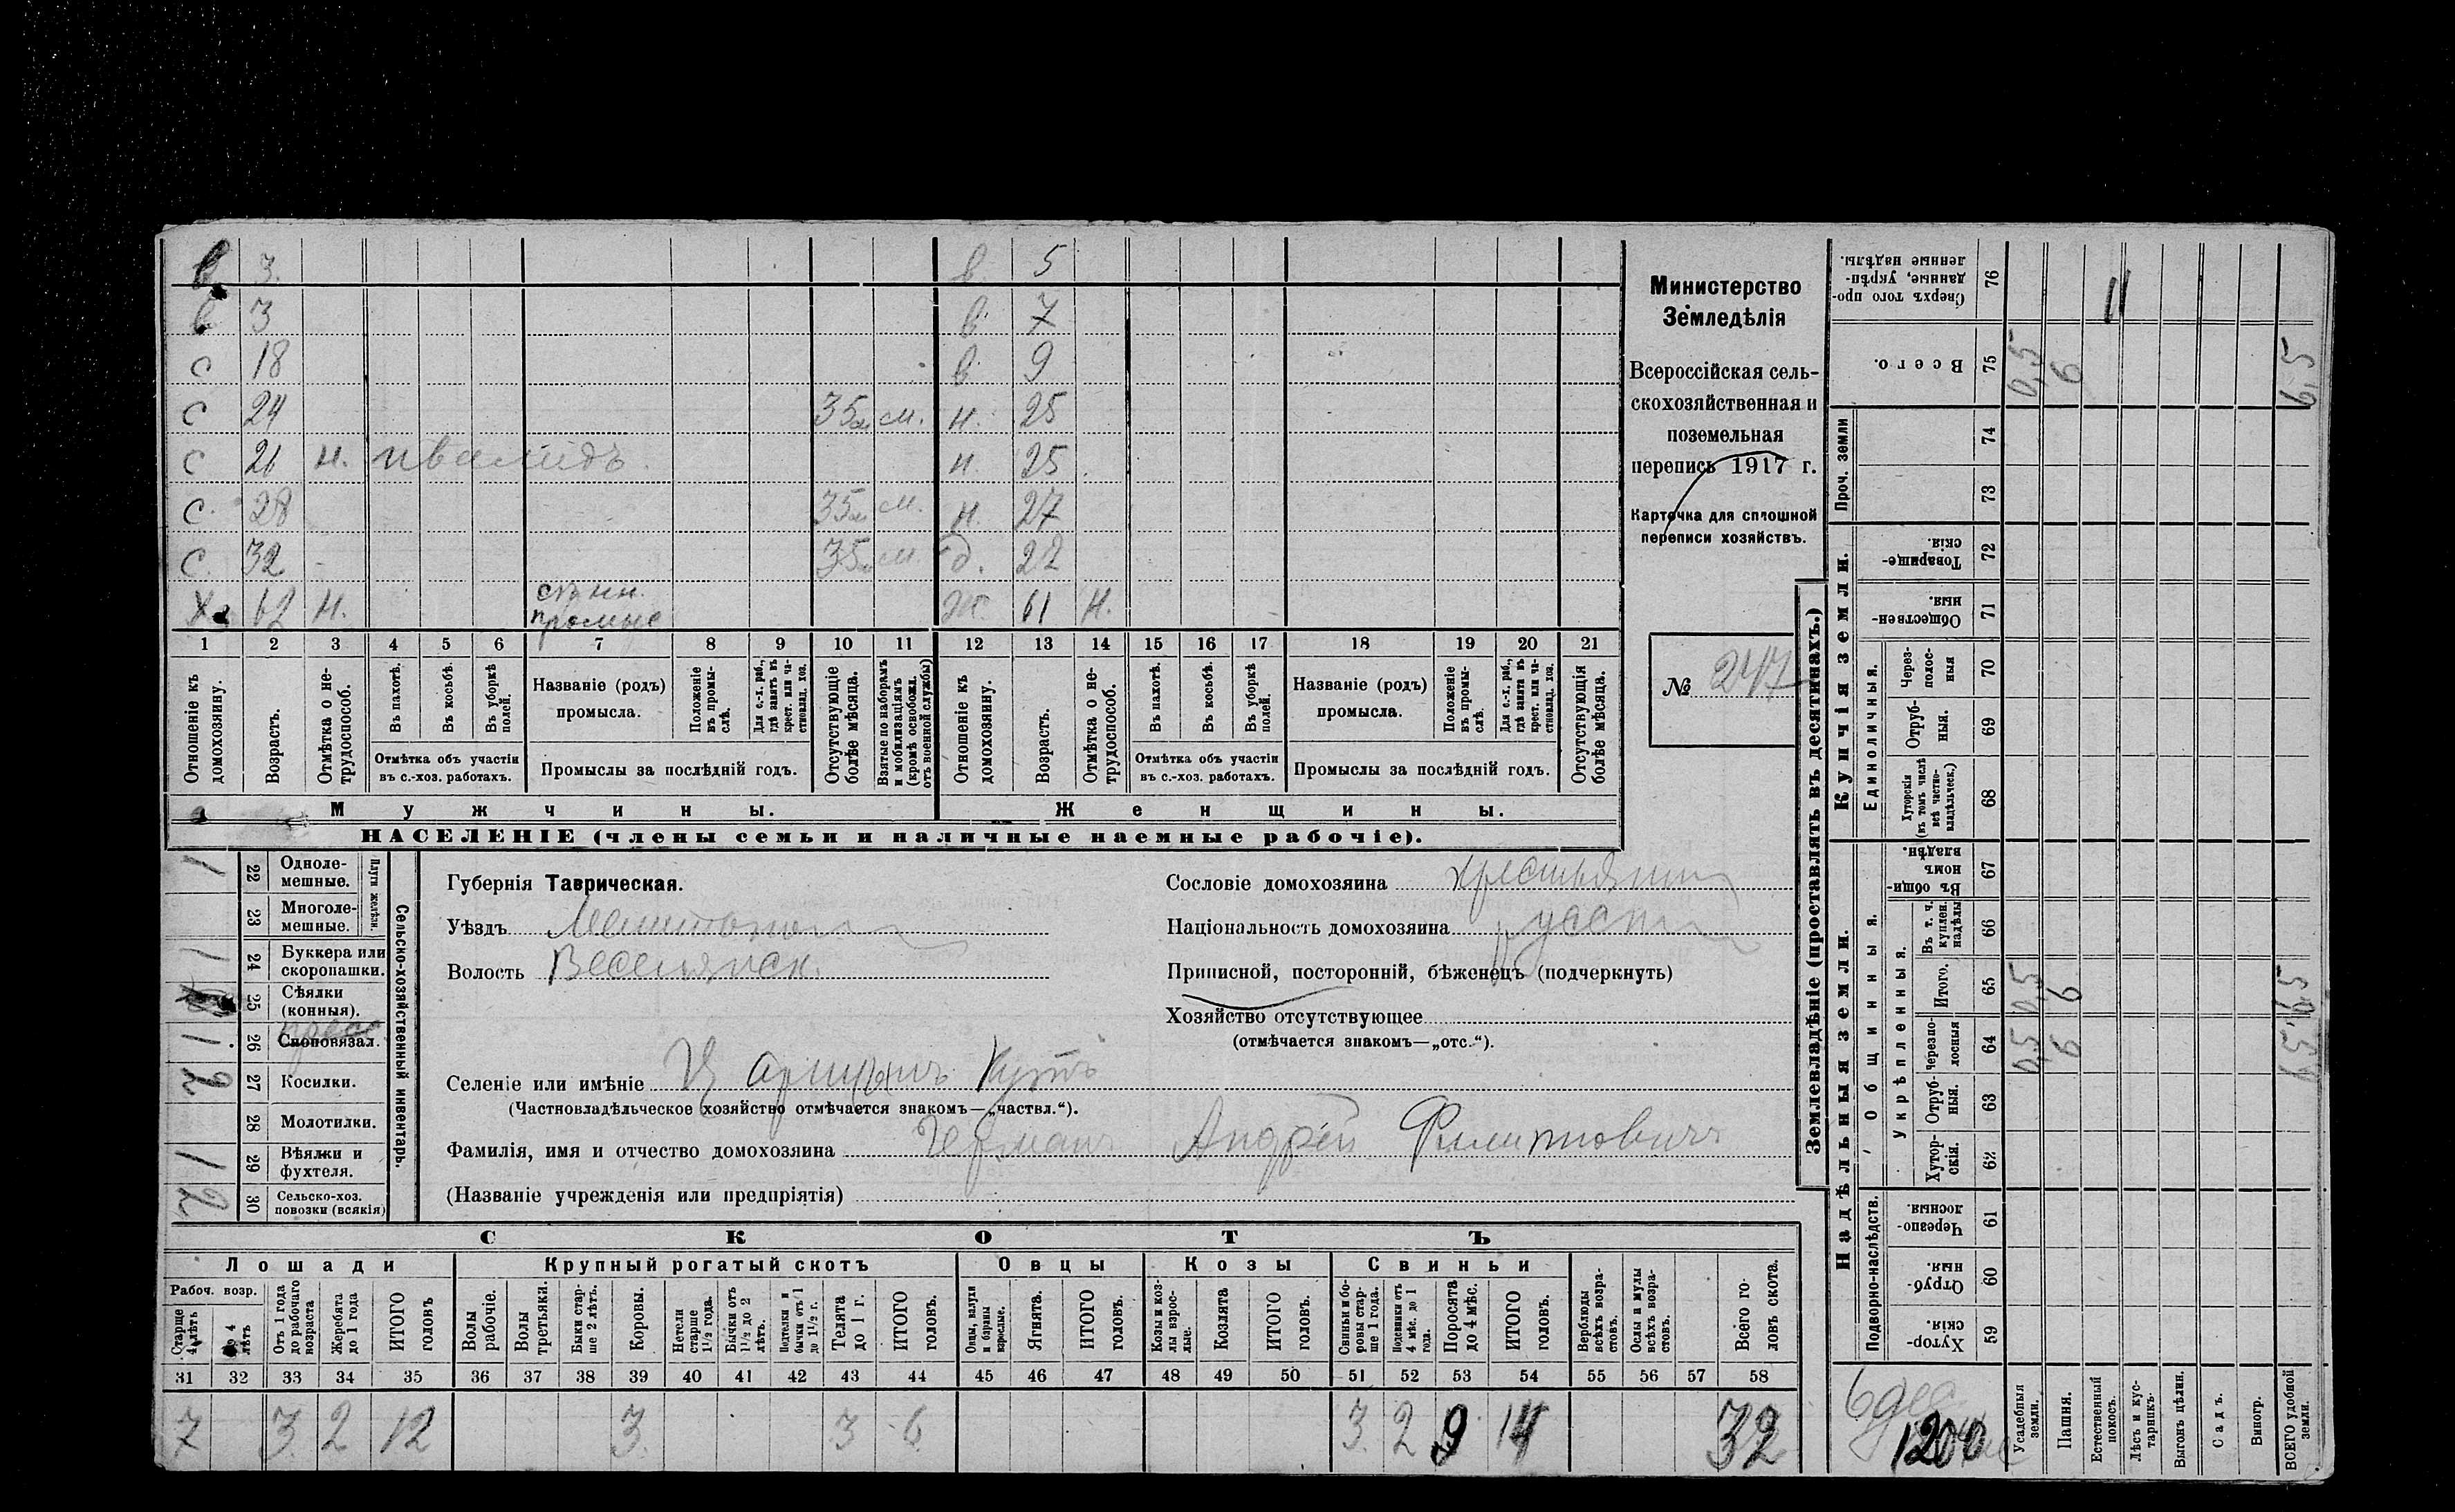 в 3. в 5
в 3 в. 7
с 18 в 9
с 24 35 м. н. 25
с 26 н. инвалидъ. н. 25
с. 28 35 м. н. 27
с. 32 35 м. д. 22
Х. 62 н. Ж. 61 н.
1 2 3 4 5 6 7 8 9 10 11 12 13 14 15 16 17 18 19 20 21
Отношеніе къ домохозяину.
Возрастъ.
Отмѣтка о не-трудоспособ.
Въ пахотѣ.
Въ косьбѣ.
Въ уборкѣ полей.
Отмѣтка объ участіи въ с.-хоз. работахъ.
Названіе (родъ) промысла.
Положеніе въ промыслѣ.
Для с.-х. раб., гдѣ занятъ въ крест. или частновлад. хоз.
Промыслы за послѣдній годъ.
Отсутствующіе болѣе мѣсяца.
Взятые по наборамъ и мобилизаціямъ (кромѣ освобожд. отъ военной службы)
Отношеніе къ домохозяину.
Возрастъ.
Отмѣтка о не-трудоспособ.
Въ пахотѣ.
Въ косьбѣ.
Въ уборкѣ полей.
Отмѣтка объ участіи въ с.-хоз. работахъ.
Названіе (родъ) промысла.
Положеніе въ промыслѣ.
Для с.-х. раб., гдѣ занята въ крест. или частновлад. хоз.
Промыслы за послѣдній годъ.
Отсутствующія болѣе мѣсяца.
Мужчины. Женщины.
НАСЕЛЕНІЕ (члены семьи и наличные наемные рабочіе).
Министерство
Земледѣлія
Всероссійская сель-
скохозяйственная и
поземельная
перепись 1917 г.
Карточка для сплошной
переписи хозяйствъ.
№ 247
Сельско-хозяйственный инвентарь.
Плуги желѣзн.
1 22 Одноле-мешные.
23 Многоле-мешные.
1 24 Буккера или скоропашки.
25 Сѣялки (конныя).
1 26 Сноповязал.
2 27 Косилки.
28 Молотилки.
1 29 Вѣялки и фухтеля.
2 30 Сельско-хоз. повозки (всякія)
Губернія Таврическая.
Уѣздъ
Волость Веселянск.
Сословіе домохозяина крестьянин
Національность домохозяина русс
Приписной, посторонній, бѣженецъ (подчеркнуть)
Хозяйство отсутствующее
(отмѣчается знакомъ—„отс.“).
Селеніе или имѣніе Кутъ
(Частновладѣльческое хозяйство отмѣчается знакомъ—„частвл.“).
Фамилія, имя и отчество домохозяина Герман Андрей Филиппович
(Названіе учрежденія или предпріятія)
СКОТЪ
Лошади Крупный рогатый скотъ Овцы Козы Свиньи
Рабоч. возр.
Старше 4 лѣтъ
До 4 лѣтъ
Отъ 1 года до рабочаго возраста
Жеребята до 1 года
ИТОГО головъ
Волы рабочіе.
Волы третьяки.
Быки старше 2 лѣтъ.
Коровы.
Нетели старше 1½ года.
Бычки отъ 1½ до 2 лѣтъ.
Подтелки и бычки отъ 1 до 1½ г.
Телята до 1 г.
ИТОГО головъ.
Овцы, валухи и бараны взрослые.
Ягнята.
ИТОГО головъ.
Козы и козлы взрослые.
Козлята
ИТОГО головъ.
Свиньи и боровы старше 1 года.
Подсвинки отъ 4 мѣс. до 1 года.
Поросята до 4 мѣс.
ИТОГО головъ.
Верблюды всѣхъ возрастовъ.
Ослы и мулы всѣхъ возрастовъ.
Всего головъ скота.
31 32 33 34 35 36 37 38 39 40 41 42 43 44 45 46 47 48 49 50 51 52 53 54 55 56 57 58
7 3 2 12 3 3 6 3 2 9 14 32
Землевладѣніе (проставлять въ десятинахъ.)
Купчія земли.
Надѣльныя земли.
Сверхъ того проданные, укрѣпленные надѣлы. 76
Всего. 75 0,5 6 6,5
Проч. земли 74
73
Товарище-скія. 72
Обществен-ныя. 71
Единоличныя.
Через-полос-ныя 70
Отруб-ныя. 69
Хуторскія (въ томъ числѣ всѣ частно-владѣльческ.) 68
Общинныя.
Въ общин-номъ владѣн. 67
Укрѣпленныя.
Въ т. ч. куплен. надѣлы 66
Итого. 65 0,5 6 6,5
Черезпо-лосныя 64 0,5 6 6,5
Отруб-ныя. 63
Хутор-скія. 62
Подворно-наслѣдств.
Черезпо-лосныя. 61
Отруб-ныя. 60
Хутор-скія. 59
1200
Усадебныя земли.
Пашня.
Естественный покосъ.
Лѣсъ и кус-тарникъ.
Выгонъ цѣлин.
Садъ.
Виногр.
ВСЕГО удобной земли.